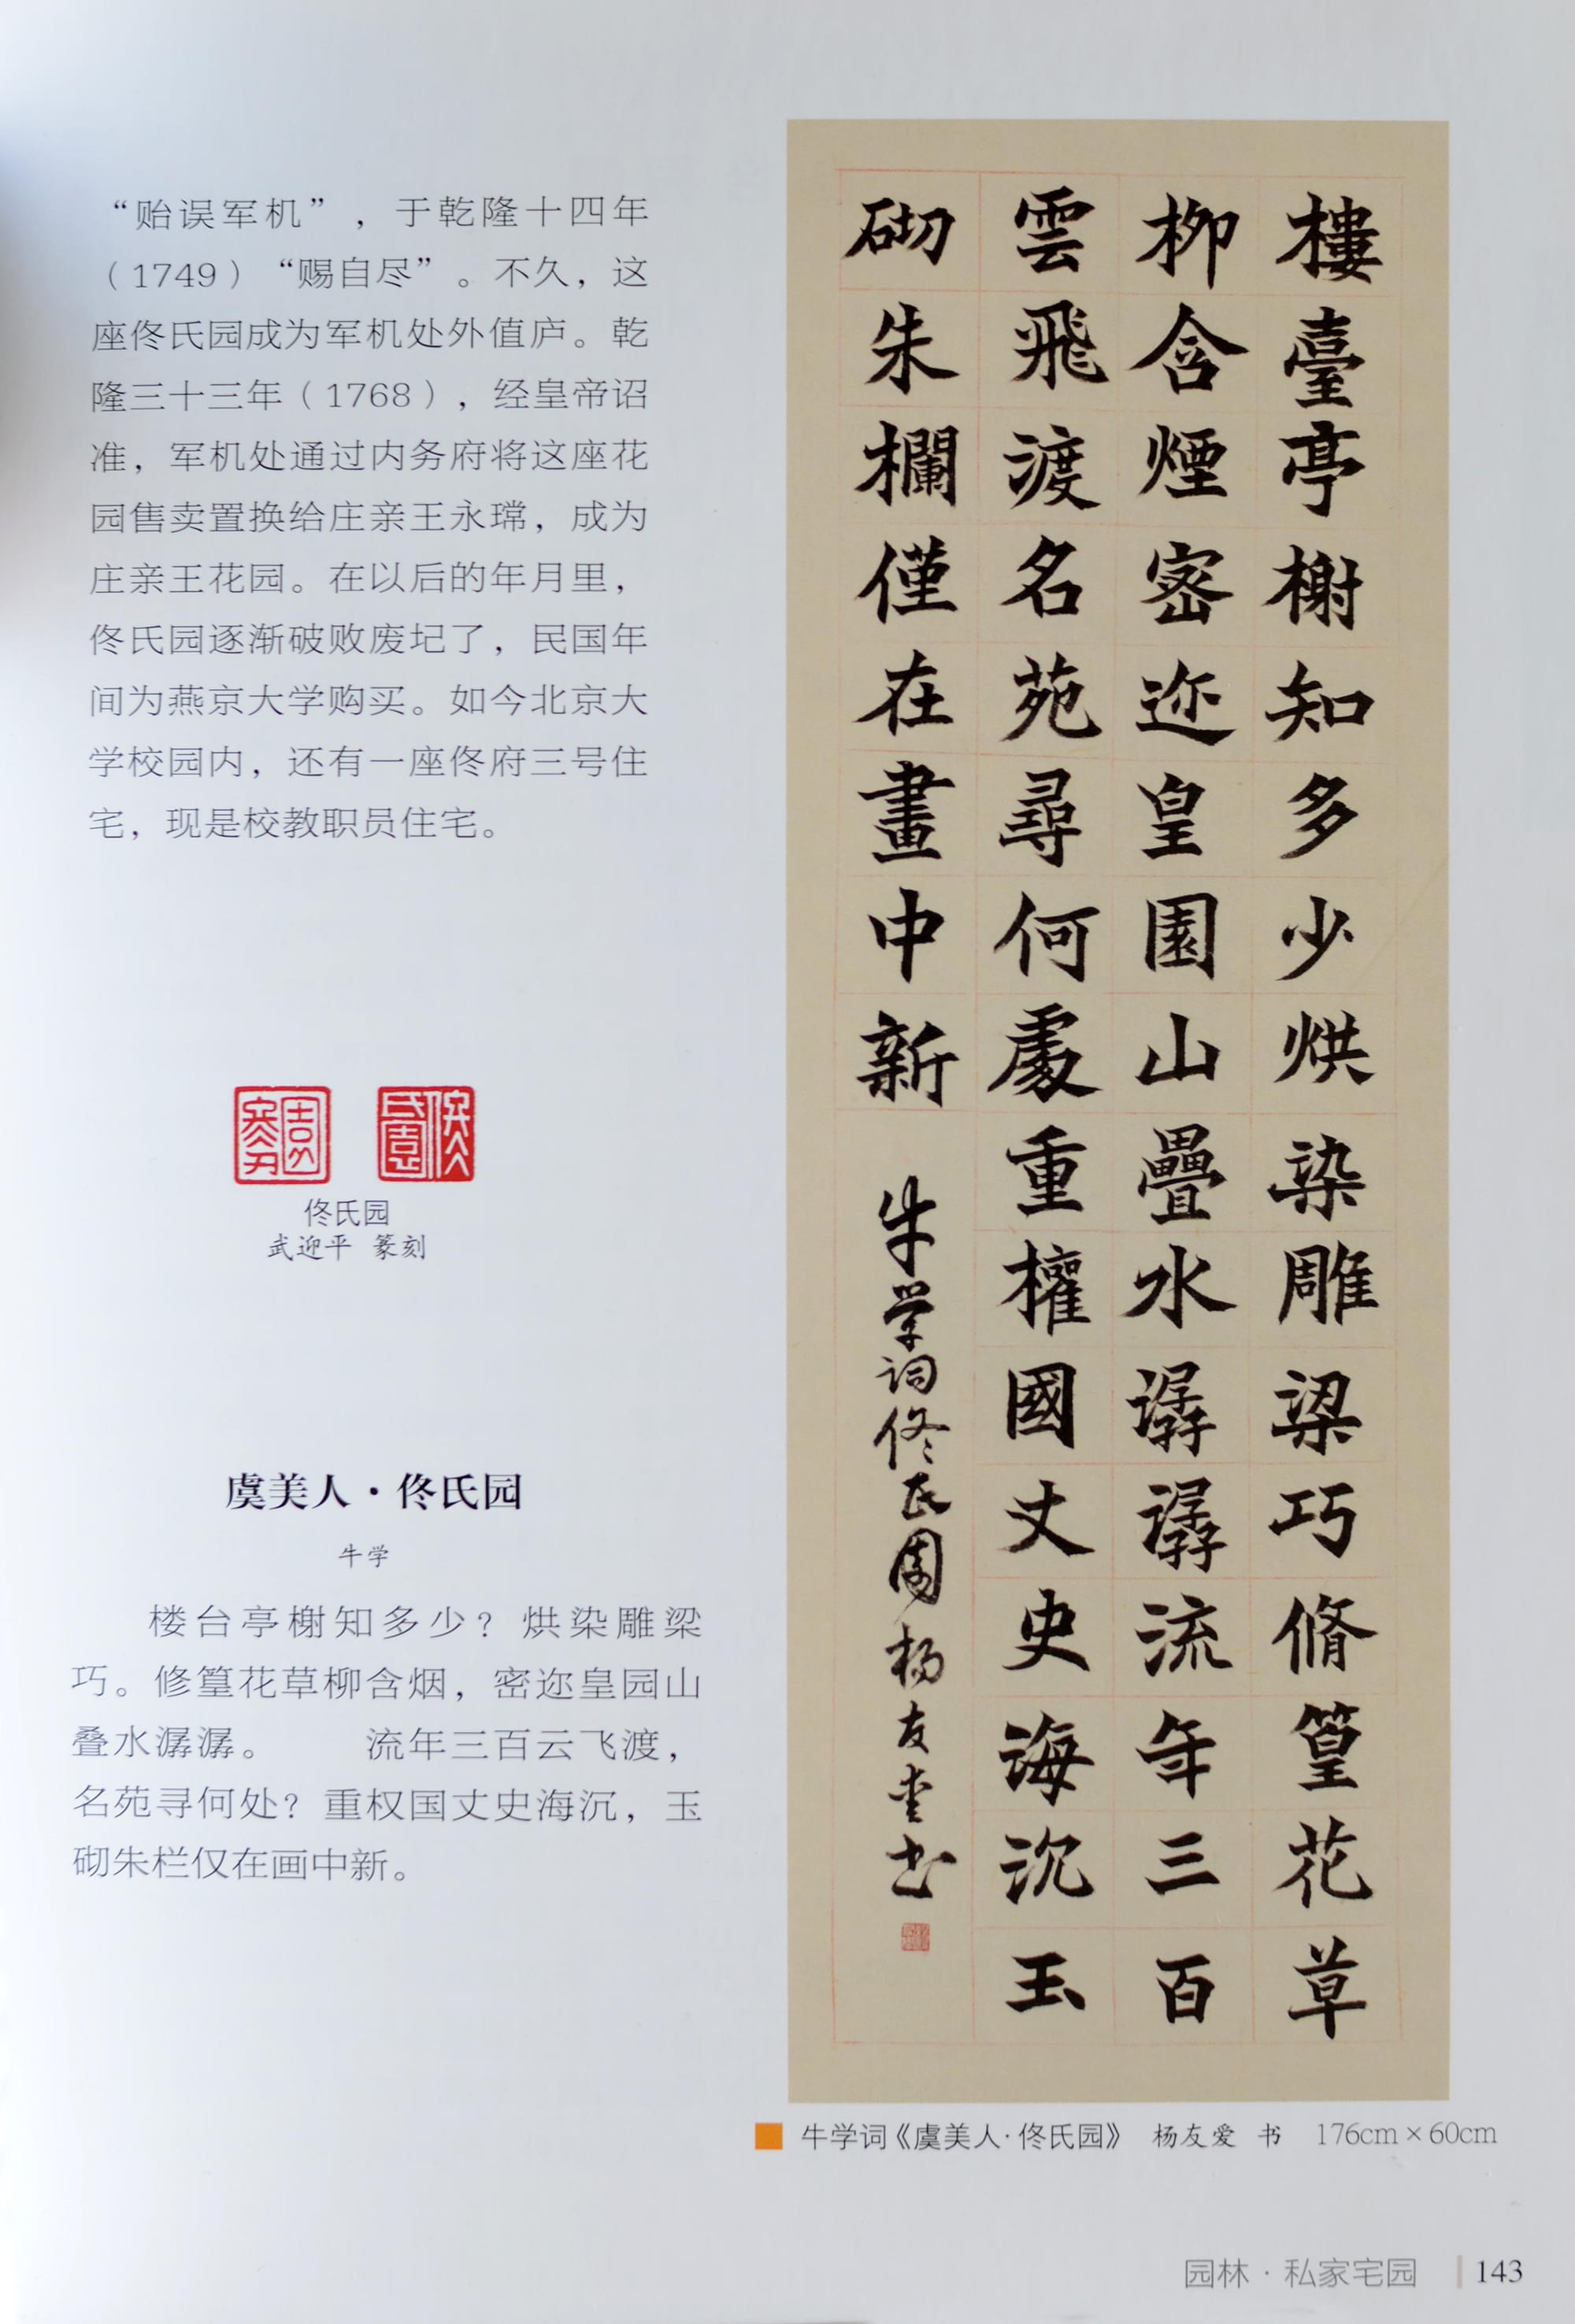 “贻误军机”，于乾隆十四年
（1749）“赐自尽”。不久，这
座佟氏园成为军机处外值庐。乾
隆三十三年（1768），经皇帝诏
准，军机处通过内务府将这座花
园售卖置换给庄亲王永瑺，成为
庄亲王花园。在以后的年月里，
佟氏园逐渐破败废圮了，民国年
间为燕京大学购买。如今北京大
学校园内，还有一座佟府三号住
宅，现是校教职员住宅。
佟氏园
武迎平 篆刻
虞美人·佟氏园
牛学
楼台亭榭知多少？烘染雕梁
巧。修篁花草柳含烟，密迩皇园山
叠水潺潺。 流年三百云飞渡，
名苑寻何处？重权国丈史海沉，玉
砌朱栏仅在画中新。
樓臺亭榭知多少烘染雕梁巧脩篁花草
柳含煙密迩皇園山疊水潺潺流年三百
雲飛渡名苑尋何處重權國丈史海沉玉
砌朱欄僅在畫中新
牛学词佟氏园杨友爱书
牛学词《虞美人·佟氏园》 杨友爱 书 176cm×60cm
园林·私家宅园 143